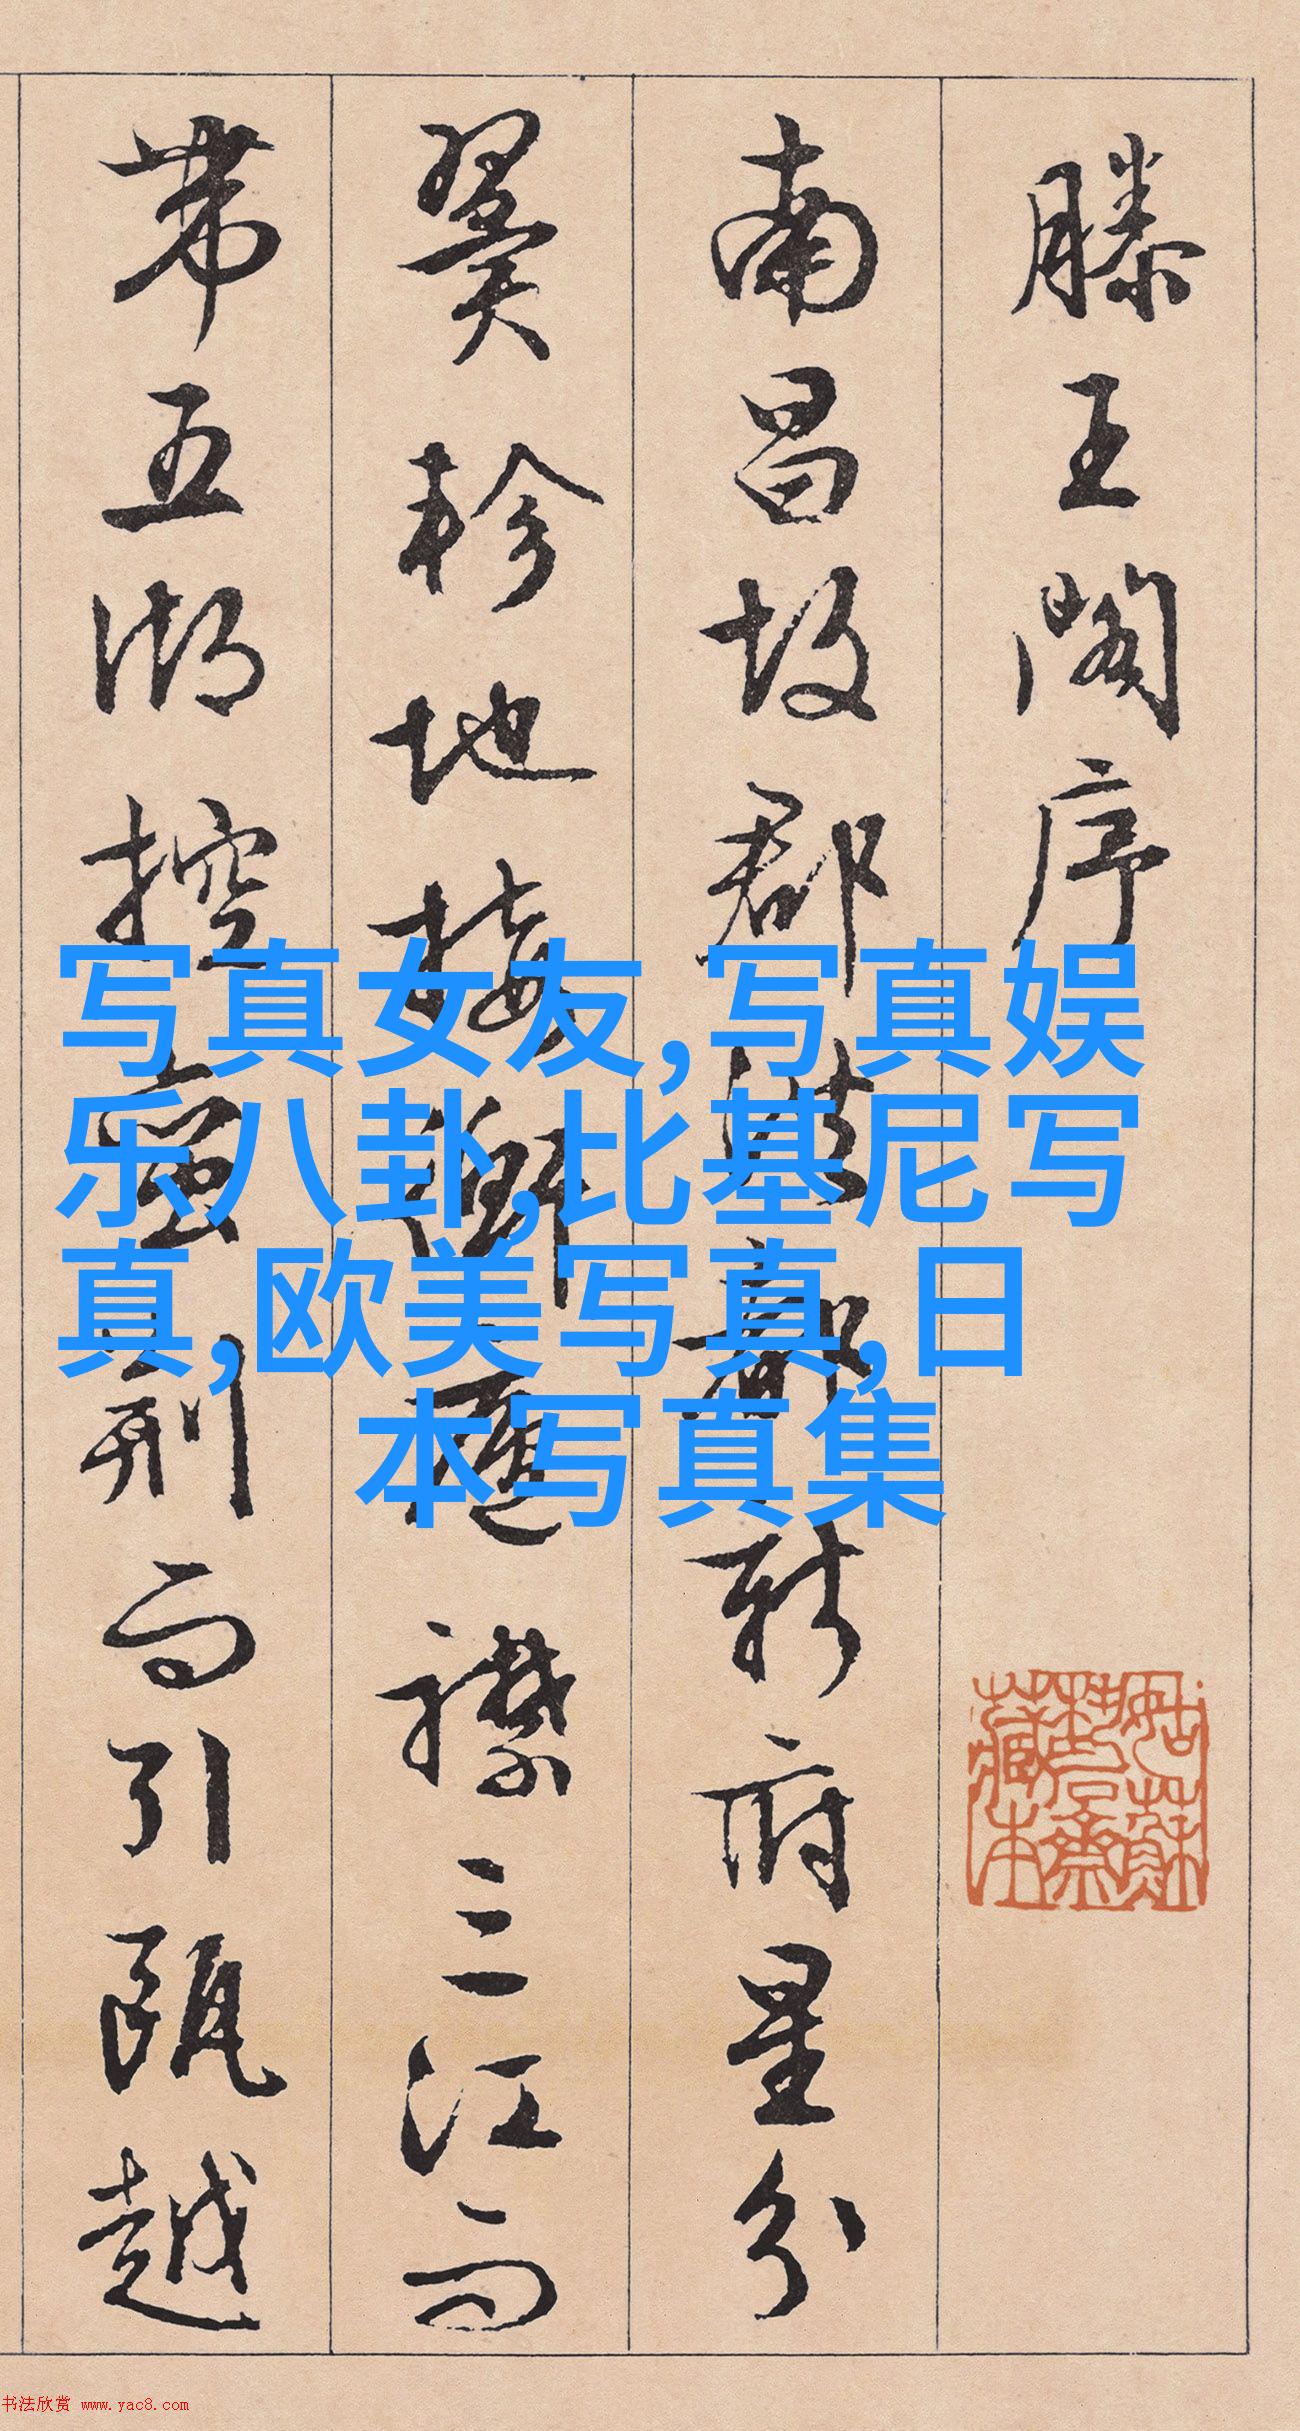 滕王閣序
南昌故郡洪都新府星分
翼軫地接衡廬襟三江而
帶五湖控蠻荊而引甌越
写真女友,写真娱
乐八卦,比基尼写
真,欧美写真,日
本写真集
姑蘇
藏本
书法欣赏 www.yac8.com